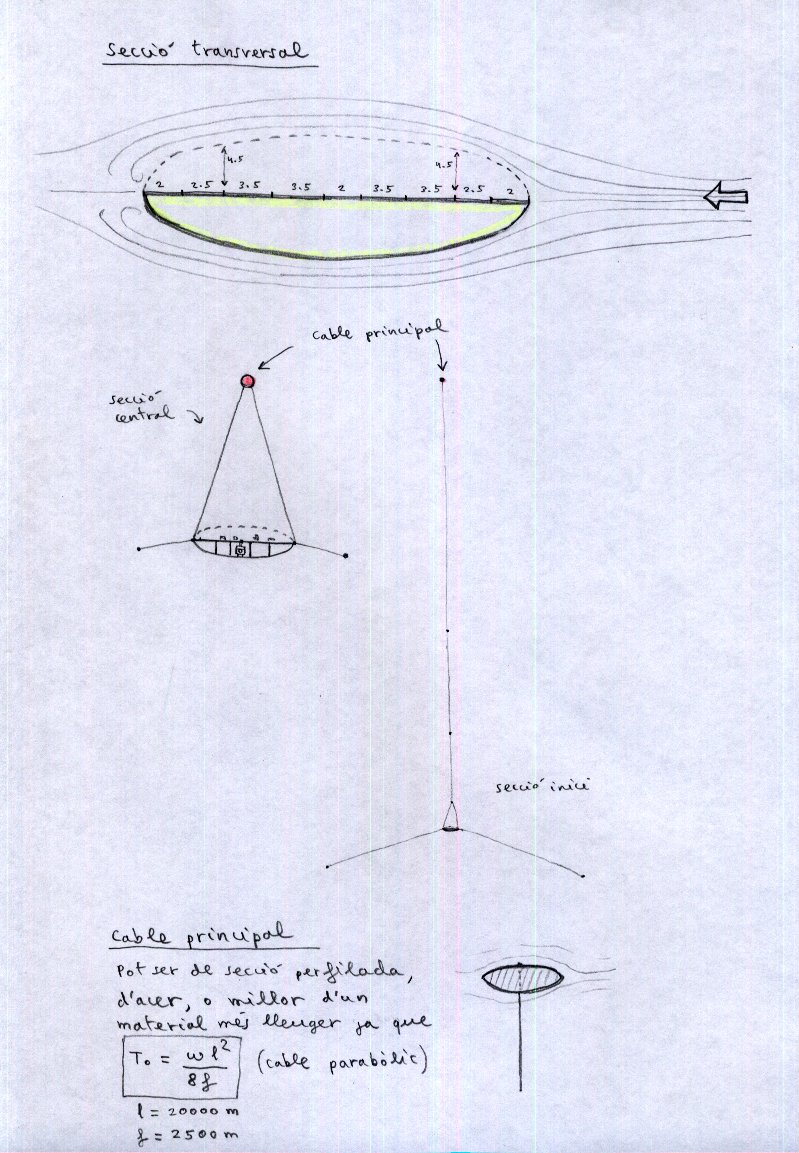 Secció transversal
4.5
4.5
2 2.5 3.5 3.5 2 3.5 3.5 2.5 2
cable principal
secció
central
secció inici
Cable principal
Pot ser de secció perfilada,
d'acer, o millor d'un
material més lleuger ja que
T₀ = wl²/8f (cable parabòlic)
l = 20000 m
f = 2500 m